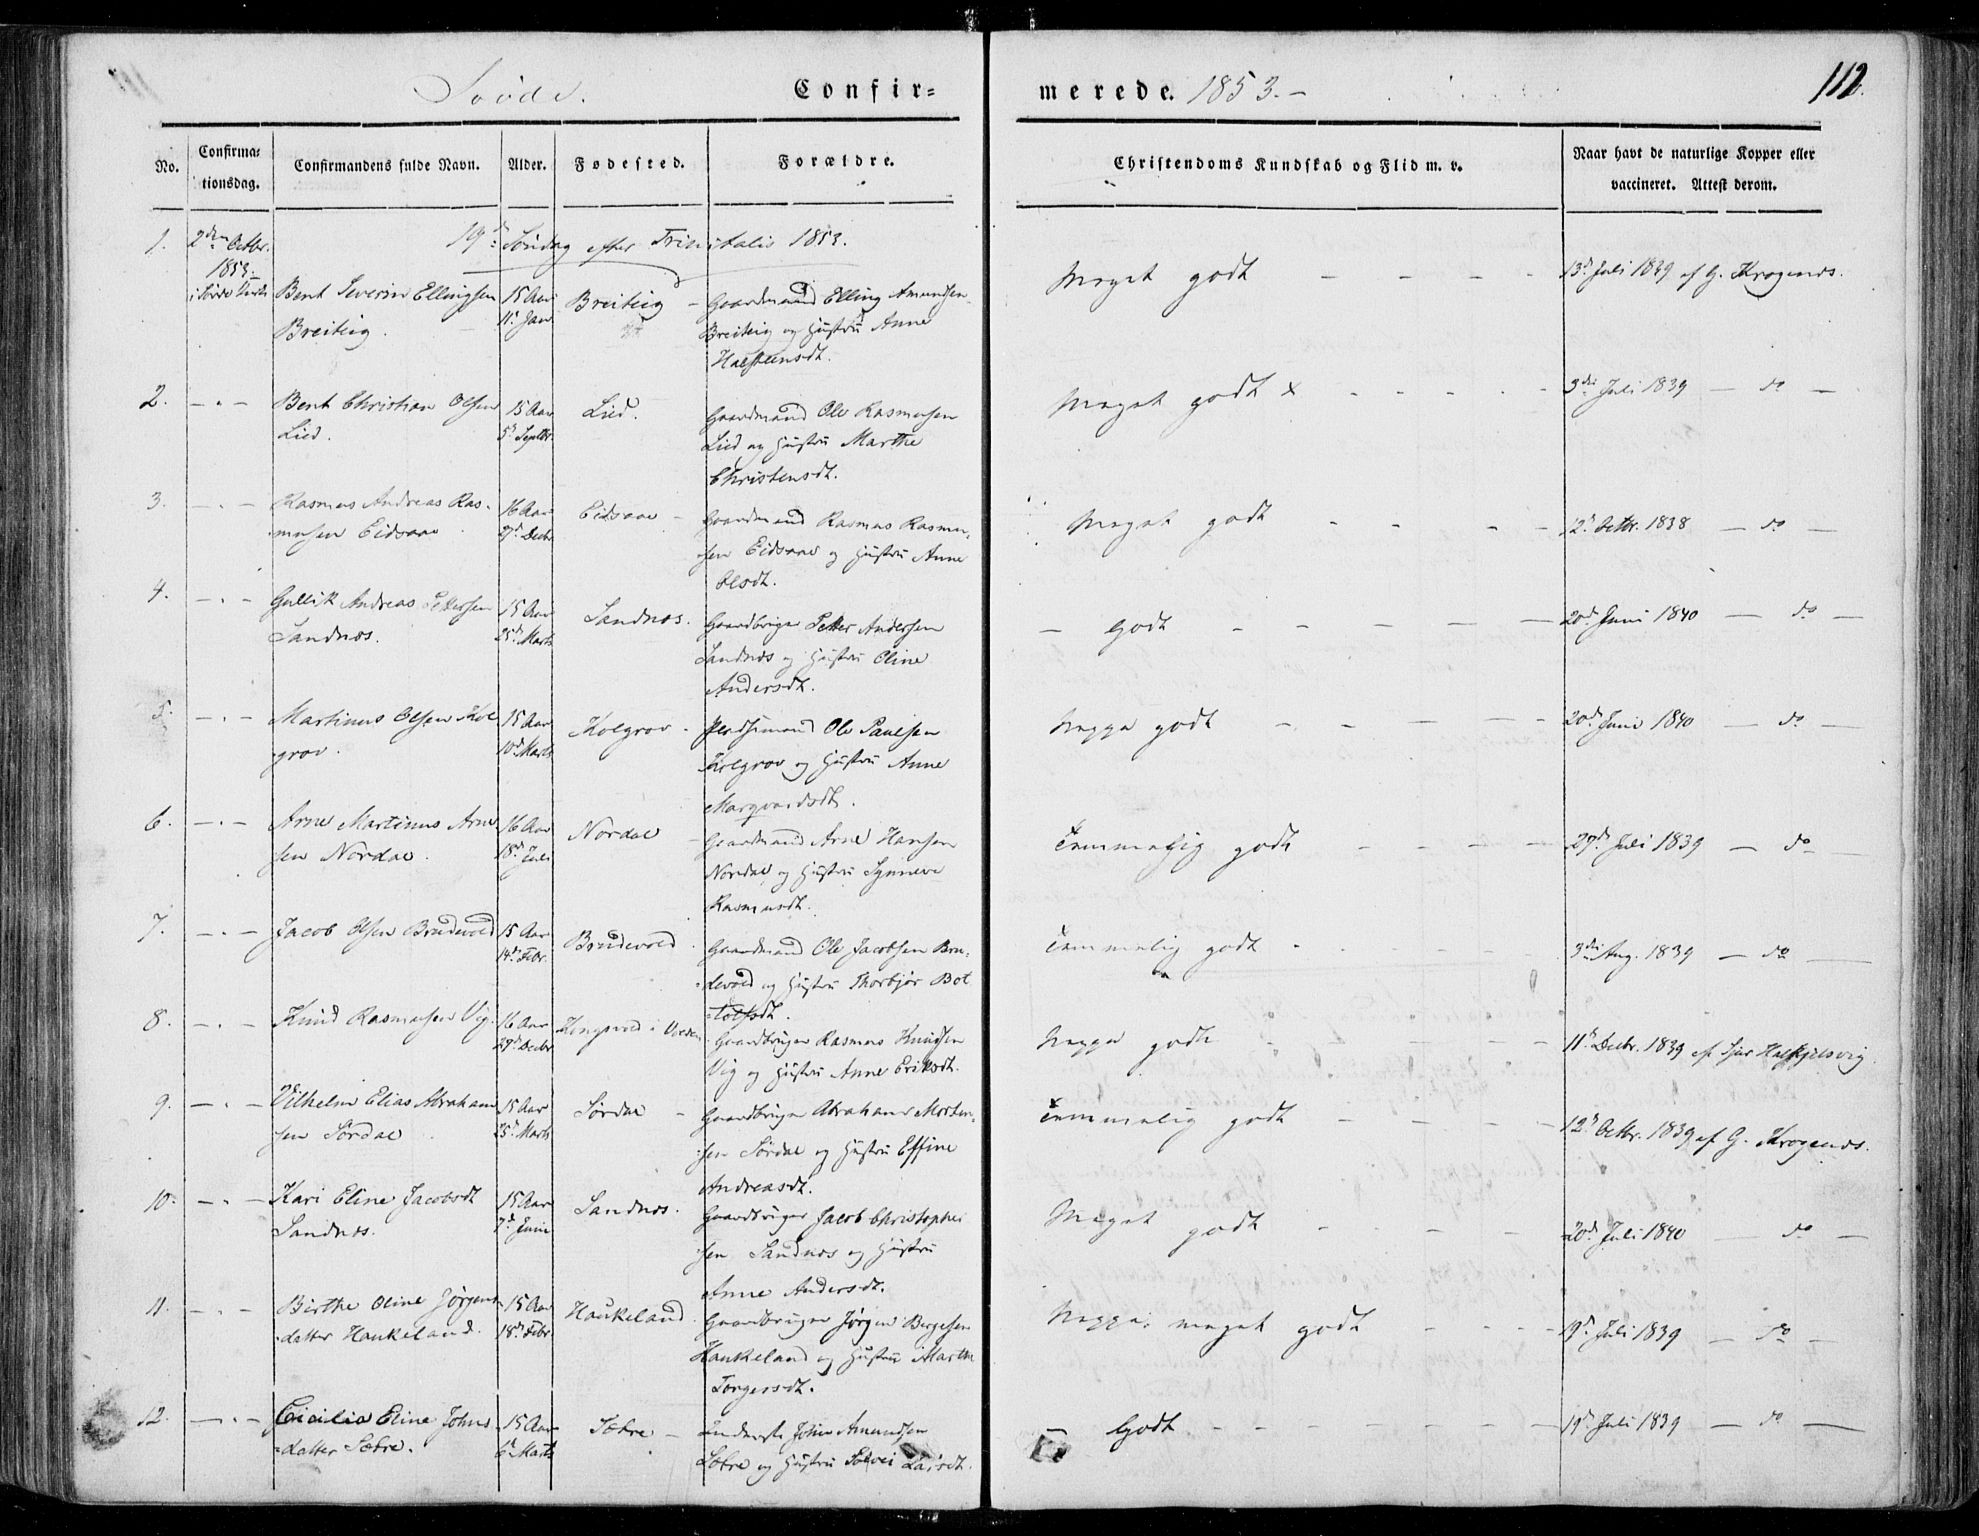 Søvde. Confir=
merede. 1853. –
112.
No.
Confirma=
tionsdag.
Confirmandens fulde Navn.
Alder.
Fødested.
Forældre.
Christendoms Kundskab og Flid m. v.
Naar havt de naturlige Kopper eller
vaccineret. Attest derom.
19de Søndag efter Trinitatis 1853.
1. 2den Octbr.
1853.
i Søvde Kirke
Bent Severin Ellingsen
Breiteig.
15 Aar
11te Jan.
Breiteig –
Gaardmand Elling Amundsen
Breiteig og Hustru Anne
Halsteensdt.
Meget godt – – – –
13de Juli 1839 af G. Krogenæs.
2. – " –
Bent Christian Olsen
Lied.
15 Aar
5te Septbr.
Lied.
Gaardmand Ole Rasmusen
Lied og Hustru Marthe
Christensdt.
Meget godt x – – – –
3die Juli 1839 – do –
3. – " –
Rasmus Andreas Ras-
musen Eidsaae
16 Aar
27de Decbr.
Eidsaae –
Gaardmand Rasmus Rasmu-
sen Eidsaae og Hustru Anne
Olsdt.
Meget godt – – – –
12te Octbr. 1838 – do –
4. – " –
Gullik Andreas Pettersen
Sandnæs.
15 Aar
25de Marts
Sandnæs.
Gaardbruger Petter Andersen
Sandnæs og Hustru Oline
Andersdt.
– Godt – – – – –
20de Juni 1840 – do –
5. – " –
Martinus Olsen Kol
grov.
15 Aar
10de Marts
Kolgrov –
Pladsmand Ole Paulsen
Kolgrov og Hustru Anne
Margvardsdt.
Neppe godt – – – – –
20de Juni 1840 – do –
6. – " –
Arne Martinus Arne
sen Nordal.
16 Aar
18de Juli
Nordal –
Gaardmand Arne Hansen
Nordal og Hustru Synneve
Rasmusdt.
Temmelig godt – – – –
29de Juli 1839 – do –
7. – " –
Jacob Olsen Brudevold
15 Aar
14de Febr.
Brudevold
Gaardmand Ole Jacobsen Bru-
devold og Hustru Thorbjør Bot
tolfsdt.
Temmelig godt – – – –
3die Aug. 1839 – do –
8. – " –
Knud Rasmusen Vig.
16 Aar
29de Decbr.
Kongsvold i Volden
Gaardbruger Rasmus Knudsen
Vig og Hustru Anne Eriksdt.
Neppe godt – – – –
11te Decbr. 1839 af Sjur Halkjelsvig.
9. – " –
Vilhelm Elias Abraham
sen Sørdal
15 Aar
25de Marts
Sørdal –
Gaardbruger Abraham Morten-
sen Sørdal og Hustru Effine
Andreasdt.
Temmelig godt – – – –
12te Octbr. 1839 af G. Krogenæs.
10. – " –
Kari Eline Jacobsdt
Sandnæs.
15 Aar
7de Juni
Sandnæs.
Gaardbruger Jacob Christopher
sen Sandnæs og Hustru
Anne Andersdt.
Meget godt – – – –
20de Juli 1840 – do –
11. – " –
Birthe Oline Jørgens-
datter Haukeland.
15 Aar
18de Febr
Haukeland
Gaardbruger Jørgen Bergesen
Haukeland og Hustru Marthe
Torgersdt.
Neppe meget godt – – –
19de Juli 1839 – do –
12. – " –
Cicilia Eline Johns
datter Sætre.
15 Aar
6te Marts
Sætre –
Inderste John Amundsen
Sætre og Hustru Solvei Larsdt.
– Godt – – – –
19de Juli 1839 – do –